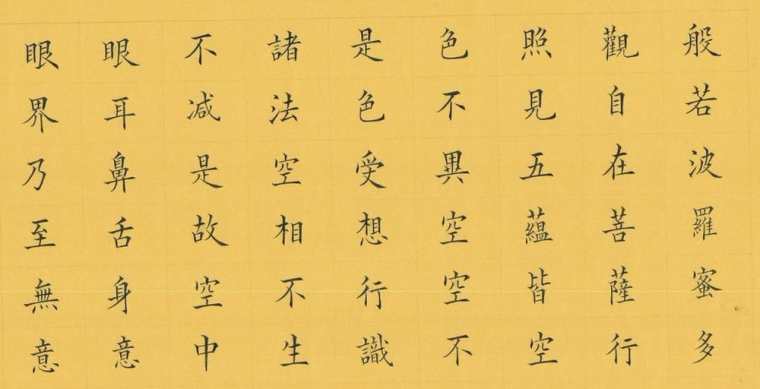 般若波羅蜜多
觀自在菩薩行
照見五蘊皆空
色不異空空不
是色受想行識
諸法空相不生
不减是故空中
眼耳鼻舌身意
眼界乃至無意